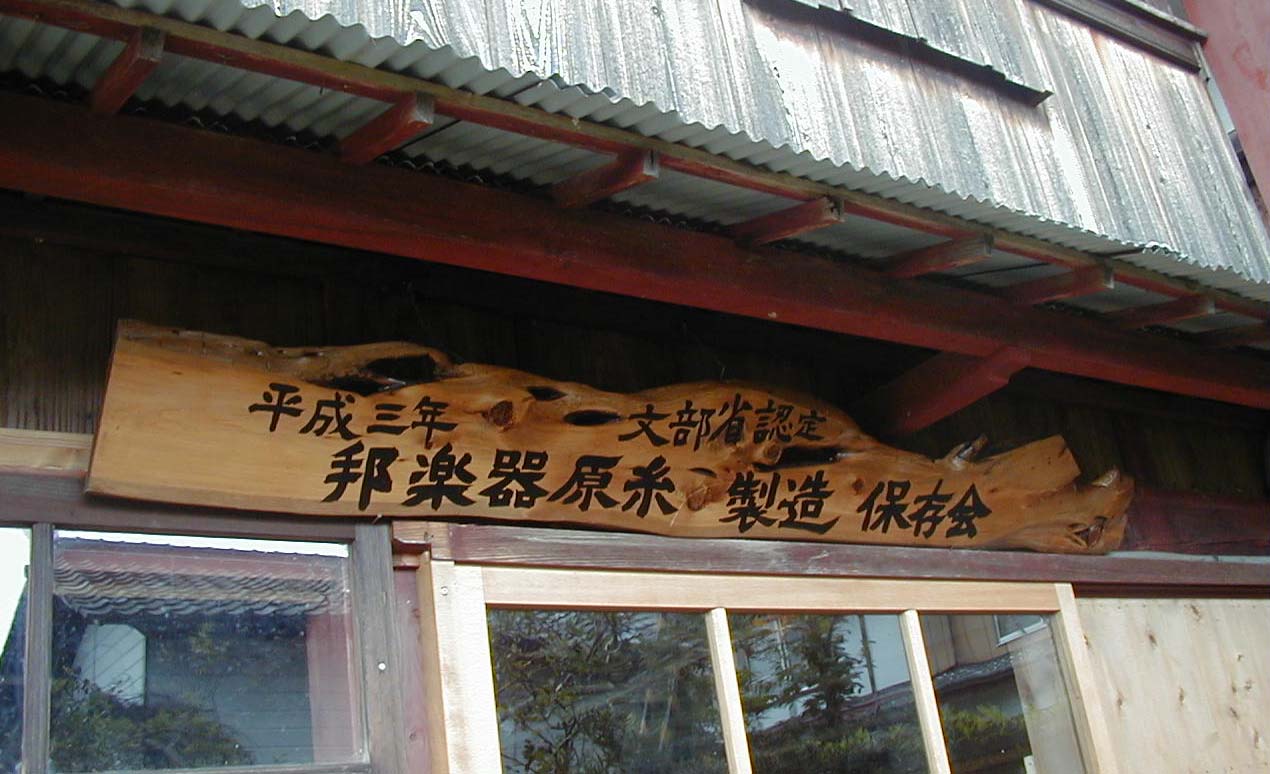 平成三年 文部省認定
邦楽器原糸 製造 保存会